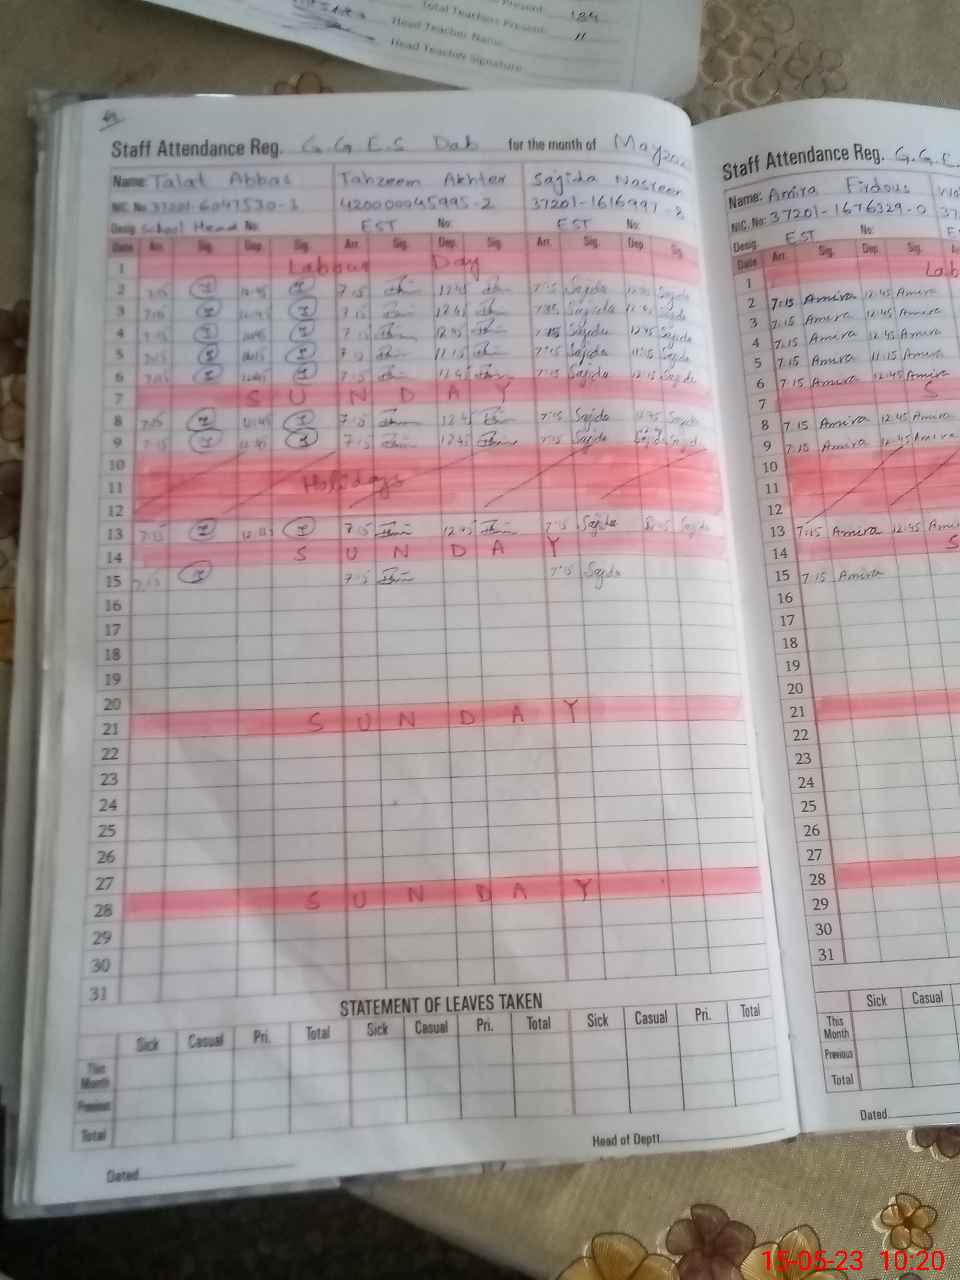 Total Teachers Present: 11
Head Teacher Name:
Head Teacher Signature
Staff Attendance Reg. G.G.E.S Dab for the month of May
Name: Talat Abbas Tahzeem Akhter Sajida Nasreen
NIC. No 37201-6047530-3 420000045995-2 37201-1616997-8
Desig. School Head No: EST No: EST No:
Date Arr. Sig. Dep. Sig. Arr. Sig. Dep. Sig. Arr. Sig. Dep. Sig.
1 Labour Day
2 7:15 12:45 7:15 12:45 7:15 Sajida 12:45 Sajida
3 7:15 12:45 7:15 12:45 7:15 Sajida 12:45 Sajida
4 7:15 12:45 7:15 12:45 7:15 Sajida 12:45 Sajida
5 7:15 11:15 7:15 11:15 7:15 Sajida 11:15 Sajida
6 7:15 12:45 7:15 12:45 7:15 Sajida Sajida
7 SUNDAY
8 7:15 12:45 7:15 12:45 7:15 Sajida 12:45 Sajida
9 7:15 12:45 7:15 12:45 7:15 Sajida
10
11 Holidays
12
13 7:15 12:45 7:15 12:45 7:15 Sajida Sajida
14 SUNDAY
15 7:15 7:15 7:15 Sajida
16
17
18
19
20
21 SUNDAY
22
23
24
25
26
27
28 SUNDAY
29
30
31
STATEMENT OF LEAVES TAKEN
Sick Casual Pri. Total Sick Casual Pri. Total Sick Casual Pri. Total
This Month
Previous
Total
Head of Deptt
Dated
Staff Attendance Reg. G.G.E.
Name: Amira Firdous
NIC. No: 37201-1676329-0 37
Desig. EST No:
Date Arr. Sig. Dep. Sig.
1 Lab
2 7:15 Amira 12:45 Amira
3 7:15 Amira 12:45 Amira
4 7:15 Amira 12:45 Amira
5 7:15 Amira 11:15 Amira
6 7:15 Amira 12:45 Amira
7 S
8 7:15 Amira 12:45 Amira
9 7:15 Amira 12:45 Amira
10
11
12
13 7:15 Amira 12:45 Ami
14 S
15 7:15 Amira
16
17
18
19
20
21
22
23
24
25
26
27
28
29
30
31
Sick Casual
This Month
Previous
Total
Dated
15-05-23 10:20